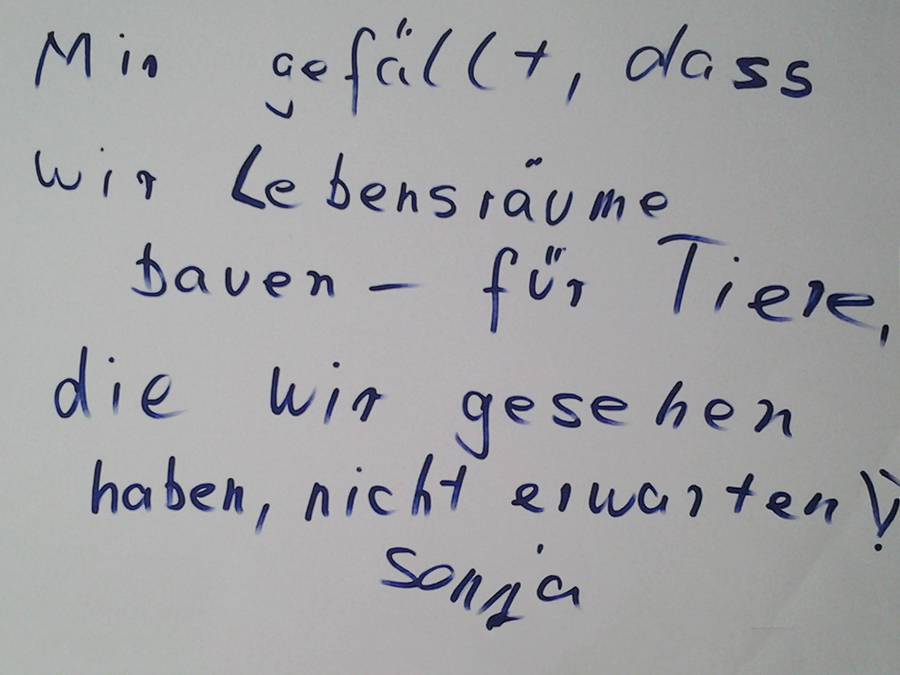 Mir gefällt, dass
wir Lebensräume
bauen – für Tiere,
die wir gesehen
haben, nicht erwarten!
Sonja